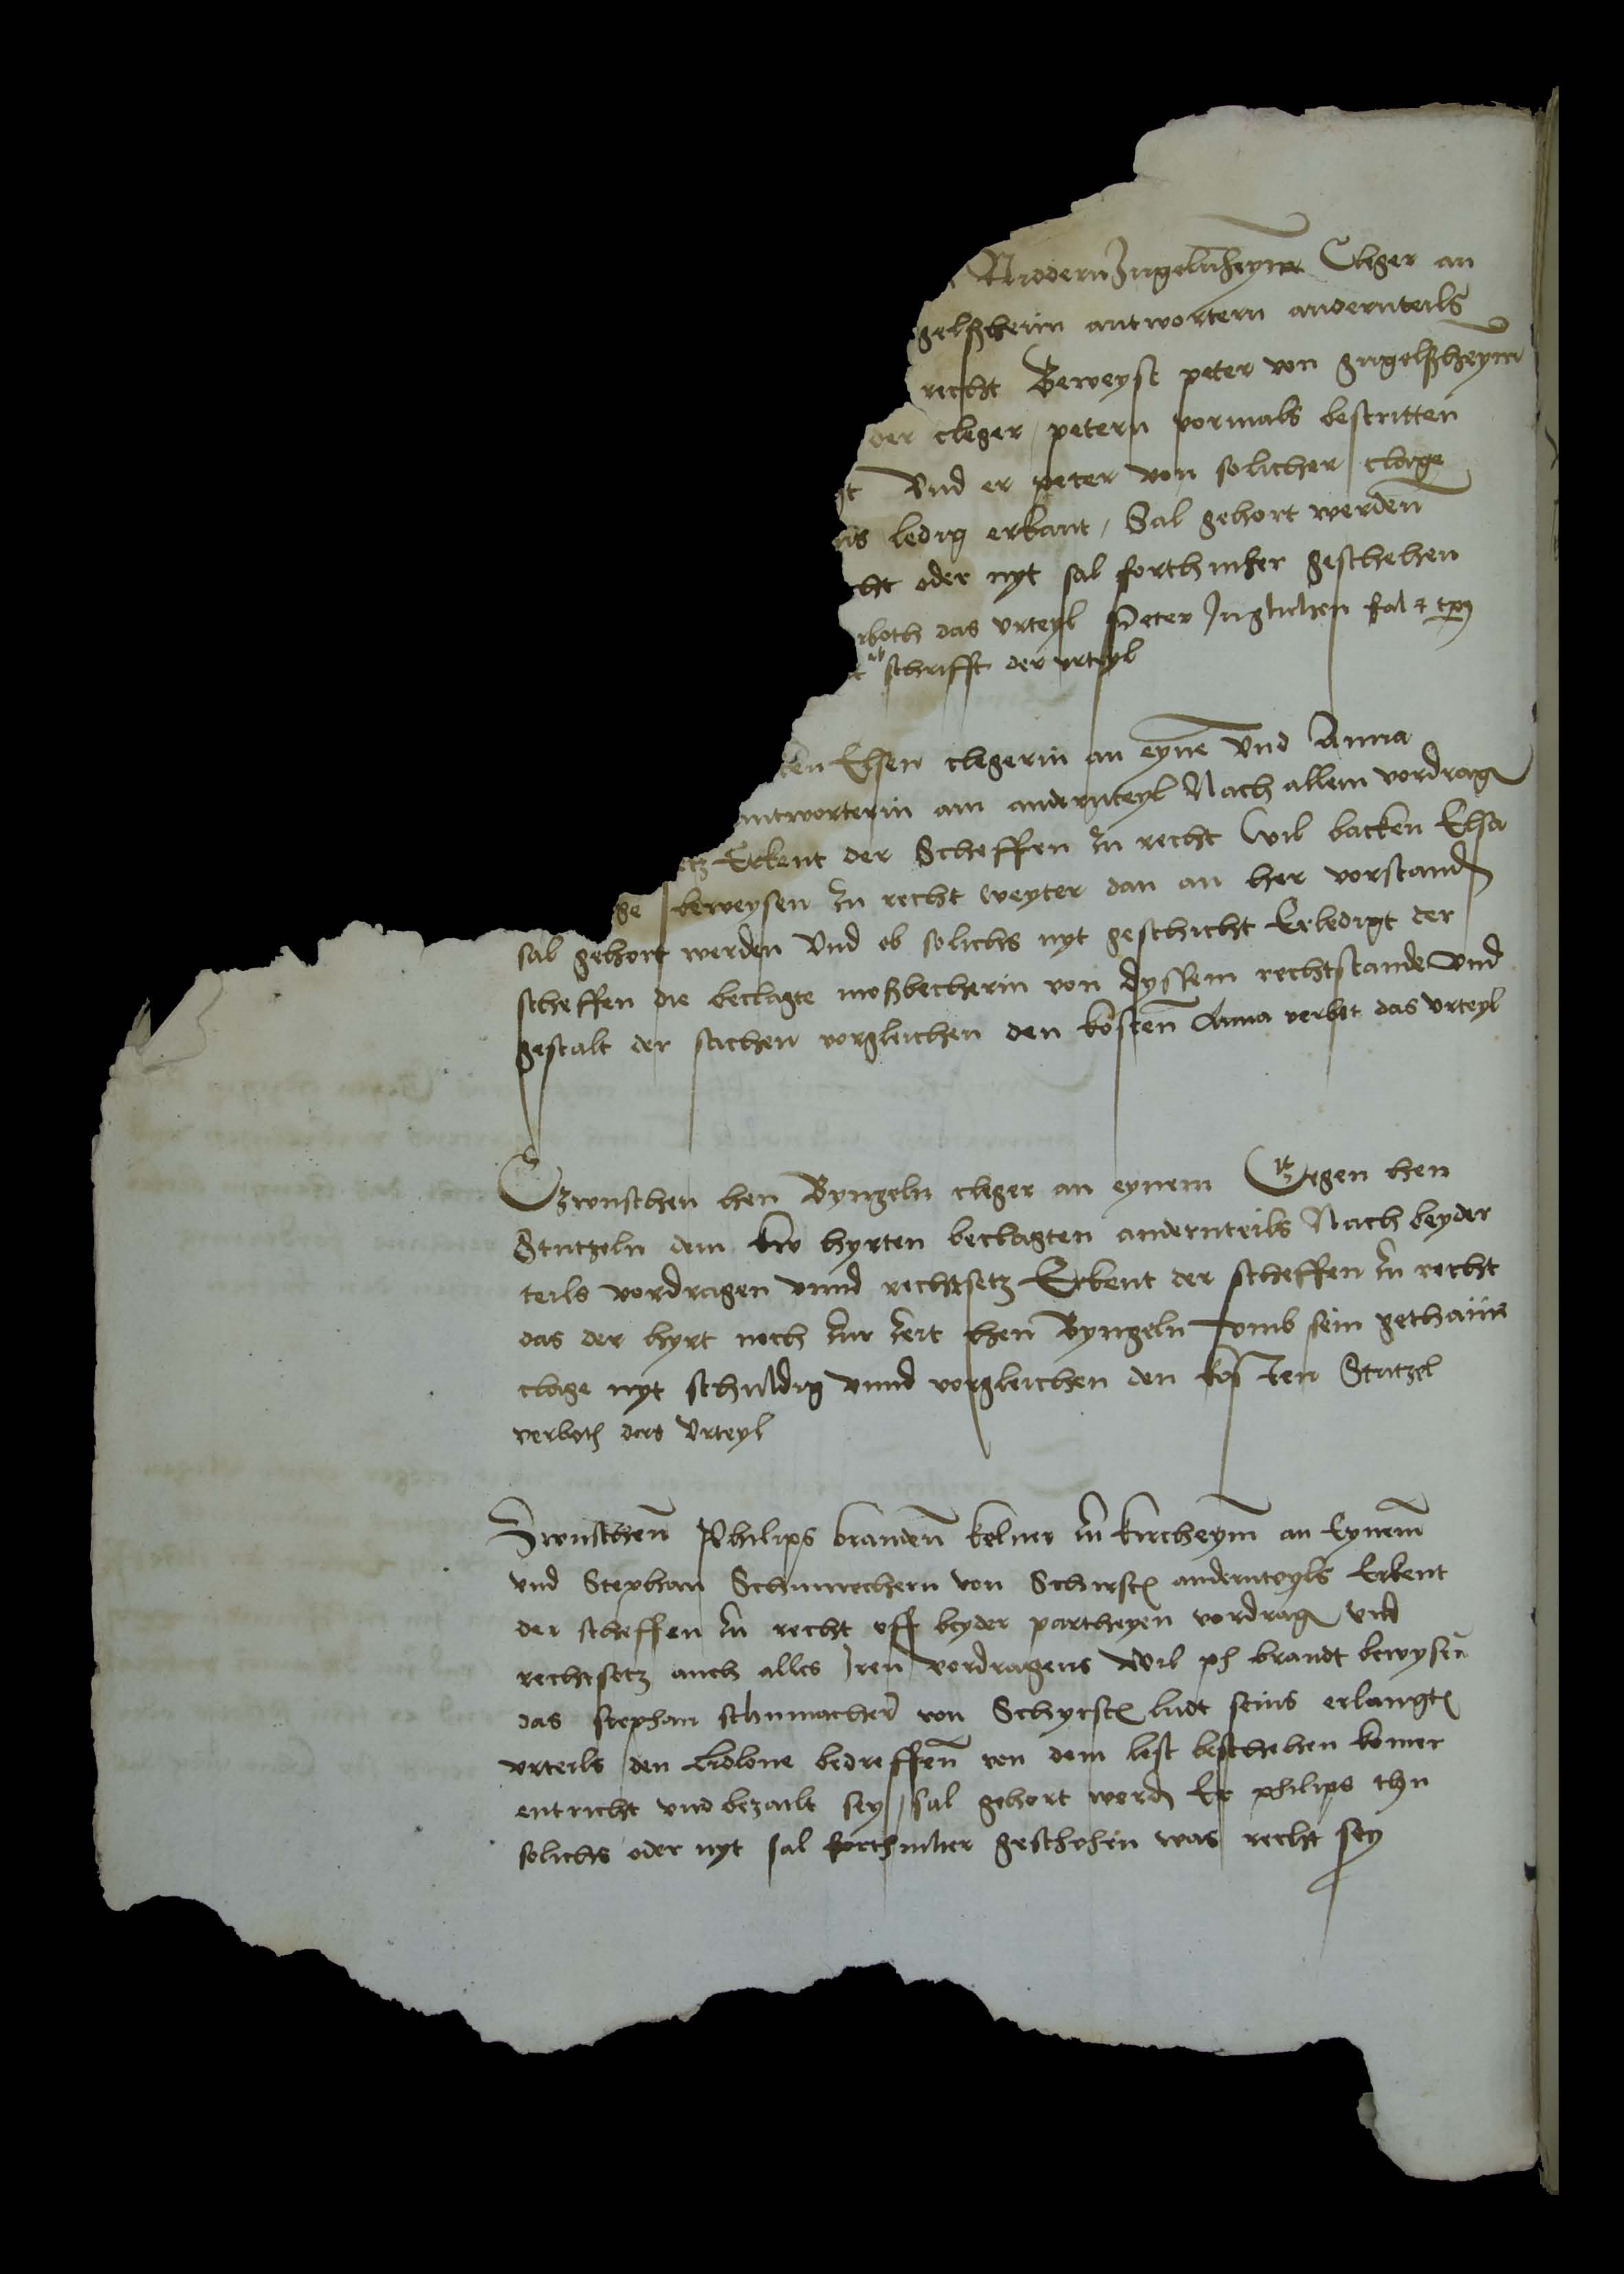 NiddernIngelnheym Cleger an
gelßheim antwortern andernteils
recht Beweyst peter von Engelßheym
der cleger petern vormals bestritten
Vnd er peter von solicher clage
ledig erkant / Sal gehort werden
cht oder nyt sal forth miher geschehen
rboth das vrteyl Peter Inglichen
abschrifft der vrteyl
ken Elsen clegerin an eyne Vnd Anna
antworterin am andernteyl Nach allem vordrag
etz Erkent der Scheffen zu recht Wil backen Elsa
ge beweysen zu recht weyter dan an her vorstand
sal gehort werden Vnd ob solichs nyt geschicht Erledigt der
scheffen die beclagte moßbecherin von dyssem rechtstande vnd
gestalt der sachen vorgleichen den kosten Anna verbot das vrteyl
Czwuschen hen Byngeln cleger an eynem Gegen hen
Strutzeln dem kw hyrten beclagten andernteils Nach beyder
teils vordragen vnnd rechtsetz Erkent der scheffen zu recht
das der hyrt noch zur zeit hen Byngeln vmb sein gethann
clage nyt schuldig vnnd vorgleichen den kosten Strutzel
verboth das Vrteyl
Zwuschen Philips branden kelner zu kircheym an Eynem
vnd Stephan Schumechern von Schirst andernteyls Erkent
der scheffen zu recht vff beyder partheyen vordrag vnd
rechtsetz auch alles Iren vordragens Wil ph brandt bewysen
das stephan schumacher von Schyrst ludt seins erlangt
vrteils den lidlone bedreffen von dem lest beschehen komer
entricht vnd bezailt sey / sal gehort werd Er philips thu
solichs oder nyt sal forth miher geschehen was recht sey